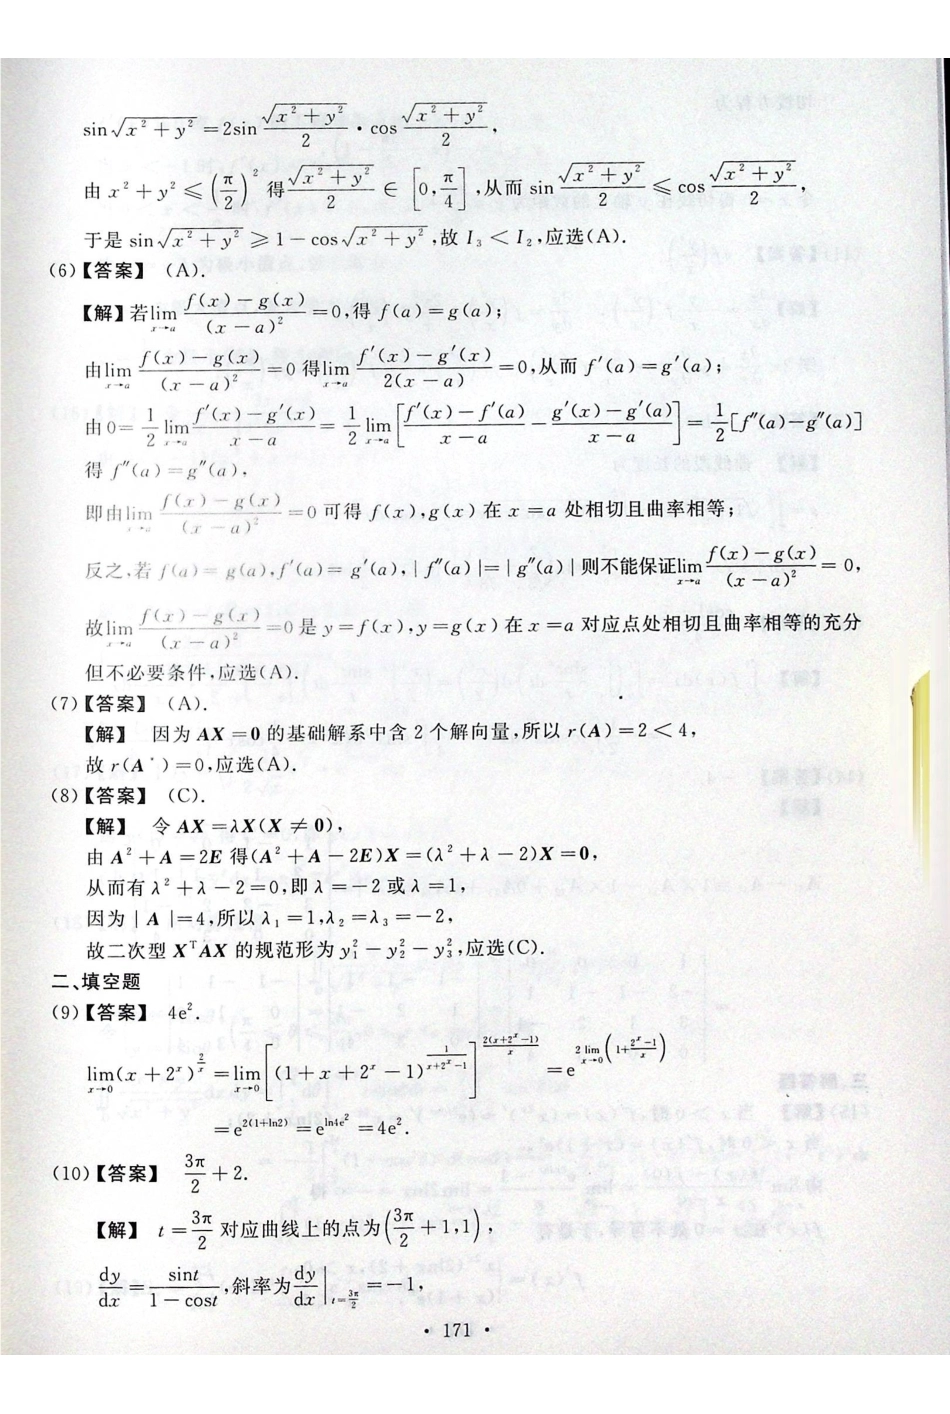 sin√(x²+y²) = 2sin (√(x²+y²))/2 · cos (√(x²+y²))/2,
由 x²+y² ≤ (π/2)² 得 (√(x²+y²))/2 ∈ [0, π/4],从而 sin (√(x²+y²))/2 ≤ cos (√(x²+y²))/2,
于是 sin√(x²+y²) ≥ 1−cos√(x²+y²),故 I₃ < I₂,应选(A).
(6)【答案】 (A).
【解】若 lim_{x→a} (f(x)−g(x))/(x−a)² =0,得 f(a)=g(a);
由 lim_{x→a} (f(x)−g(x))/(x−a)² =0 得 lim_{x→a} (f′(x)−g′(x))/(2(x−a)) =0,从而 f′(a)=g′(a);
由 0= 1/2 lim_{x→a} (f′(x)−g′(x))/(x−a) = 1/2 lim_{x→a} [(f′(x)−f′(a))/(x−a) − (g′(x)−g′(a))/(x−a)] = 1/2[f″(a)−g″(a)]
得 f″(a)=g″(a),
即由 lim_{x→a} (f(x)−g(x))/(x−a)² =0 可得 f(x),g(x) 在 x=a 处相切且曲率相等;
反之,若 f(a)=g(a),f′(a)=g′(a),|f″(a)|=|g″(a)|则不能保证 lim_{x→a} (f(x)−g(x))/(x−a)² =0,
故 lim_{x→a} (f(x)−g(x))/(x−a)² =0 是 y=f(x),y=g(x) 在 x=a 对应点处相切且曲率相等的充分
但不必要条件,应选(A).
(7)【答案】 (A).
【解】 因为 AX=0 的基础解系中含 2 个解向量,所以 r(A)=2<4,
故 r(A*)=0,应选(A).
(8)【答案】 (C).
【解】 令 AX=λX(X≠0),
由 A²+A=2E 得(A²+A−2E)X=(λ²+λ−2)X=0,
从而有 λ²+λ−2=0,即 λ=−2 或 λ=1,
因为 |A|=4,所以 λ₁=1,λ₂=λ₃=−2,
故二次型 XᵀAX 的规范形为 y₁²−y₂²−y₃²,应选(C).
二、填空题
(9)【答案】 4e².
lim_{x→0}(x+2ˣ)^{2/x} = lim_{x→0}[(1+x+2ˣ−1)^{1/(x+2ˣ−1)}]^{2(x+2ˣ−1)/x} = e^{2lim_{x→0}(1+(2ˣ−1)/x)}
=e^{2(1+ln2)}=e^{ln4e²}=4e².
(10)【答案】 3π/2+2.
【解】 t=3π/2 对应曲线上的点为(3π/2+1,1),
dy/dx = sint/(1−cost),斜率为 dy/dx|_{t=3π/2}=−1,
· 171 ·